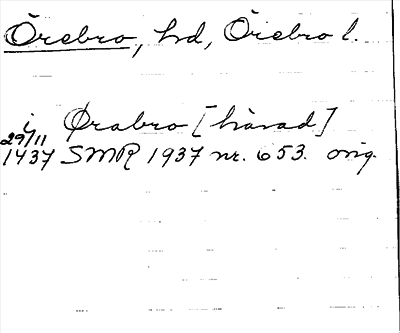 Örebro, hd, Örebro l.
i Ørabro [härad]
29/11
1437 SMR 1937 nr. 653. orig.